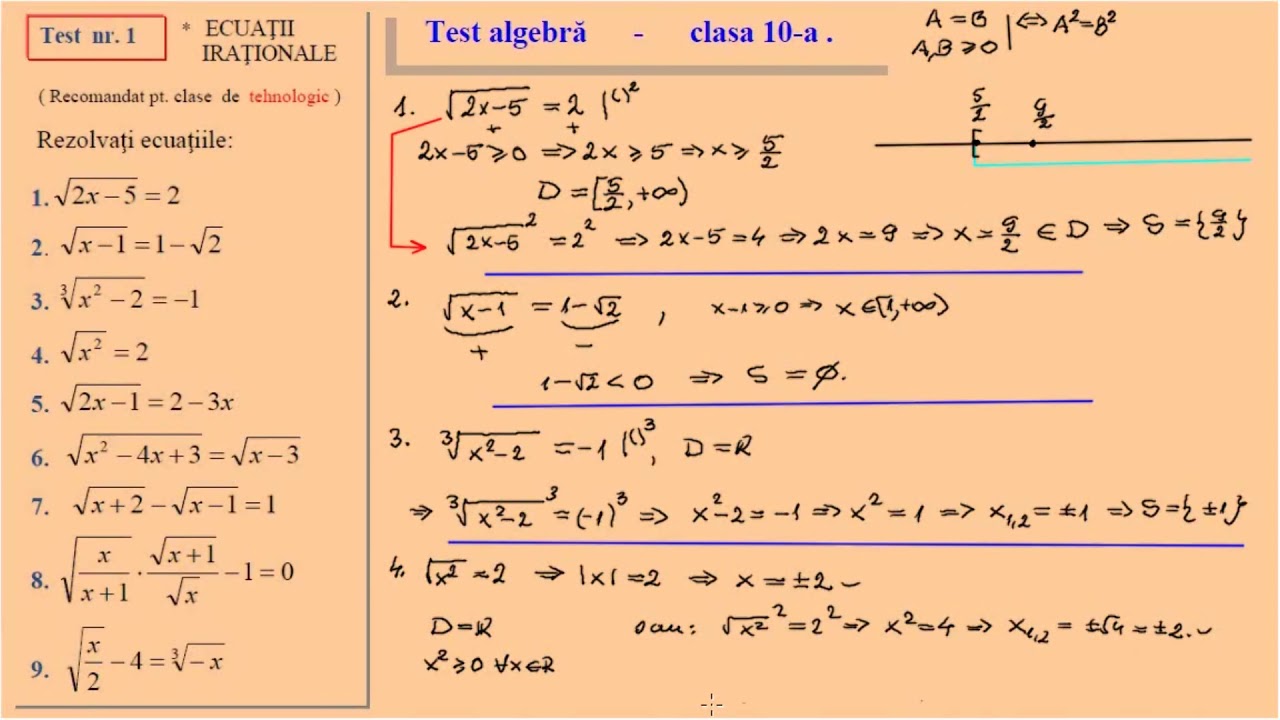 Test nr. 1
* ECUAŢII
IRAŢIONALE
( Recomandat pt. clase de tehnologic )
Rezolvaţi ecuaţiile:
1. √(2x − 5) = 2
2. √(x − 1) = 1 − √2
3. ∛(x² − 2) = −1
4. √(x²) = 2
5. √(2x − 1) = 2 − 3x
6. √(x² − 4x + 3) = √(x − 3)
7. √(x + 2) − √(x − 1) = 1
8. √(x/(x + 1)) · √(x + 1)/√x − 1 = 0
9. √(x/2) − 4 = ∛(−x)
Test algebră - clasa 10-a .
A = B | ⟺ A² = B²
A, B ≥ 0
5/2 9/2
[
1. √(2x−5) = 2 |()²
+ +
2x−5 ≥ 0 ⇒ 2x ≥ 5 ⇒ x ≥ 5/2
D = [5/2, +∞)
√(2x−5)² = 2² ⇒ 2x−5 = 4 ⇒ 2x = 9 ⇒ x = 9/2 ∈ D ⇒ S = {9/2}
2. √(x−1) = 1−√2 , x−1 ≥ 0 ⇒ x ∈ [1, +∞)
+ −
1−√2 < 0 ⇒ S = ∅.
3. ∛(x²−2) = −1 |()³, D = R
⇒ ∛(x²−2)³ = (−1)³ ⇒ x²−2 = −1 ⇒ x² = 1 ⇒ x₁,₂ = ±1 ⇒ S = {±1}
4. √(x²) = 2 ⇒ |x| = 2 ⇒ x = ±2
D = R sau: √(x²)² = 2² ⇒ x² = 4 ⇒ x₁,₂ = ±√4 = ±2.
x² ≥ 0 ∀x∈R